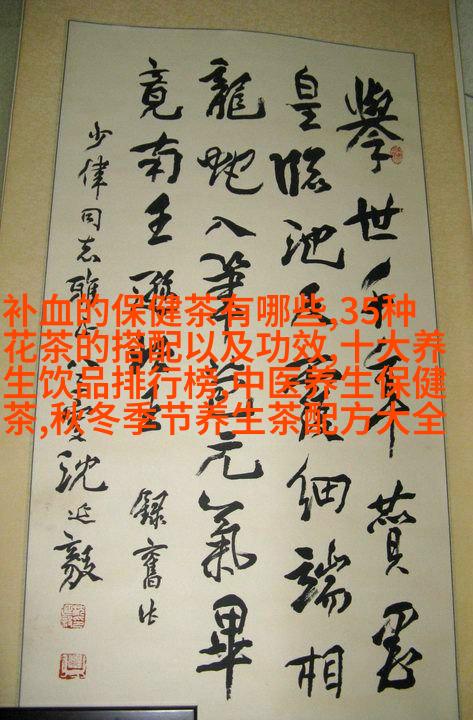 补血的保健茶有哪些,35种
花茶的搭配以及功效,十大养
生饮品排行榜,中医养生保健
茶,秋冬季节养生茶配方大全
舉世千贊墨
皇臨池細端相
龍蛇入筆元氣畢
竟南王王錄舊作
少偉同志雅沈延毅